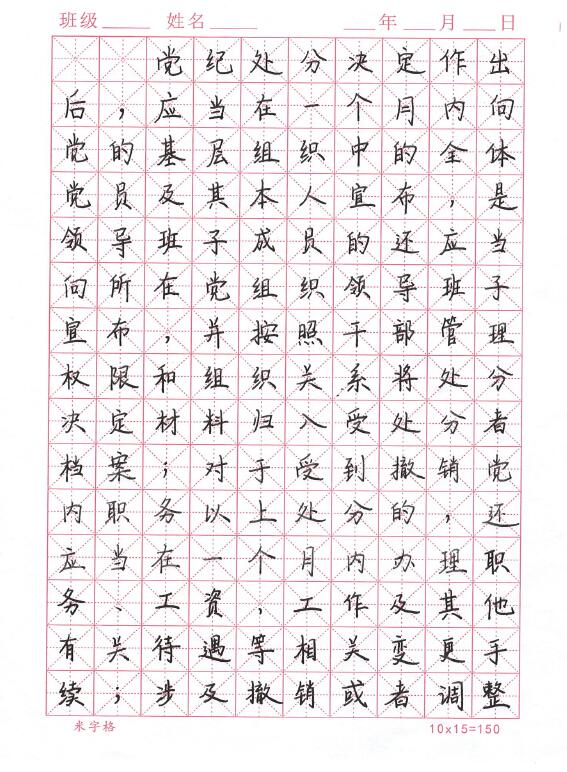 班级 姓名 年 月 日
党纪处分决定作出
后，应当在一个月内向
党的基层组织中的全体
党员及其本人宣布，是
领导班子成员的还应当
向所在党组织领导班子
宣布，并按照干部管理
权限和组织关系将处分
决定材料归入受处分者
档案；对于受到撤销党
内职务以上处分的，还
应当在一个月内办理职
务、工资，工作及其他
有关待遇等相关变更手
续；涉及撤销或者调整
米字格 10x15=150